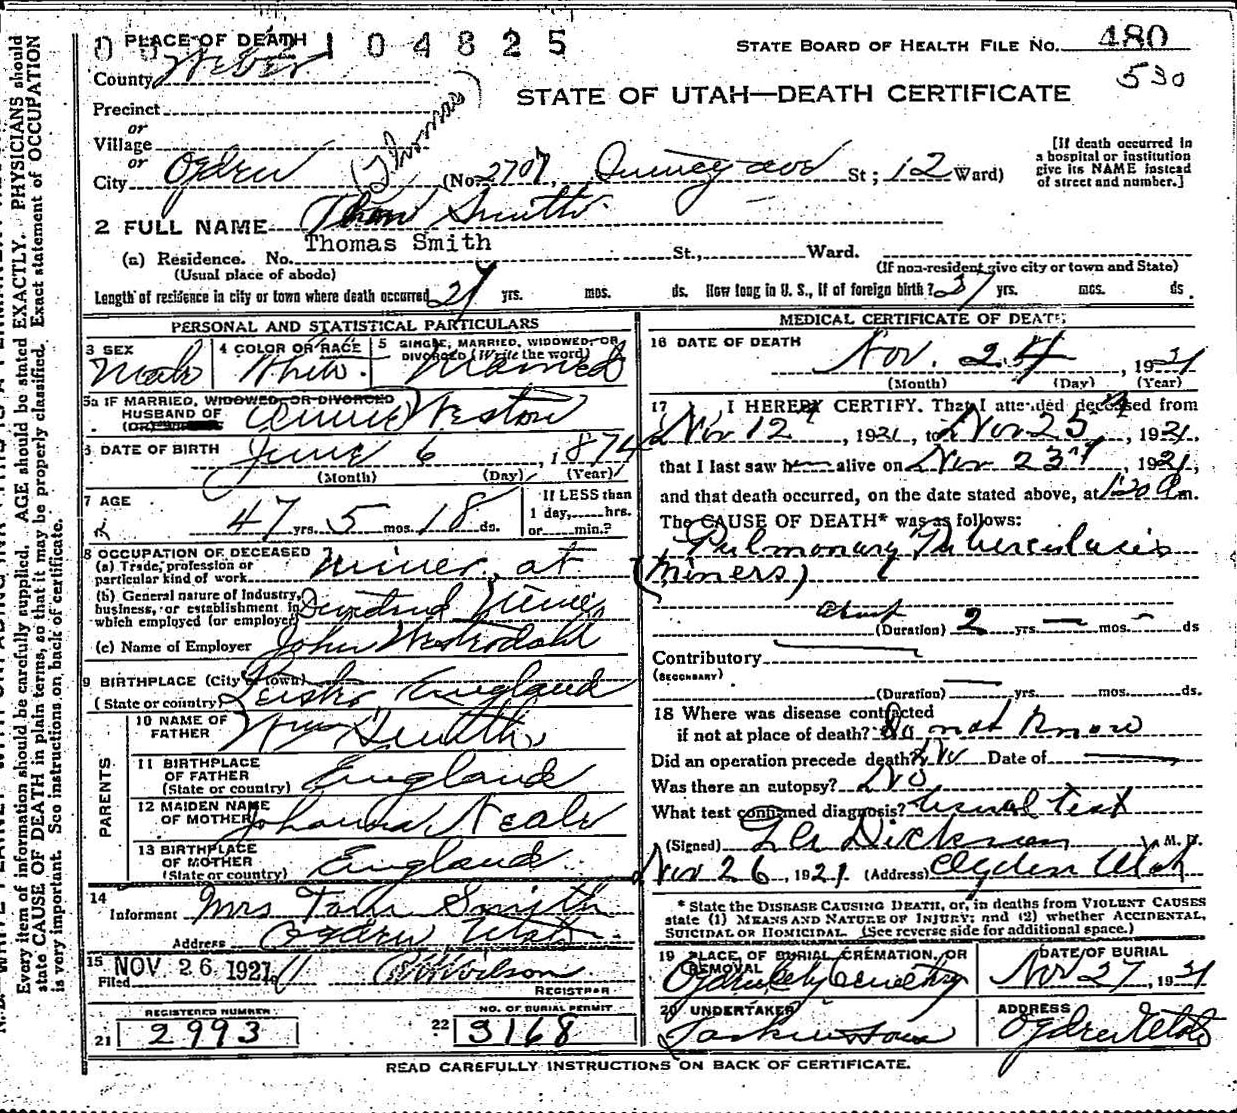 PLACE OF DEATH
2104825
STATE BOARD OF HEALTH FILE NO. 480
530
County Weber
STATE OF UTAH—DEATH CERTIFICATE
Precinct
or
Village
or
City Ogden (No. 2707 Quincy ave St; 12 Ward)
(Thomas)
[If death occurred in
a hospital or institution
give its NAME instead
of street and number.]
2 FULL NAME Thom Smith
Thomas Smith
(a) Residence. No. St., Ward.
(Usual place of abode) (If non-resident give city or town and State)
Length of residence in city or town where death occurred yrs. mos. ds. How long in U. S., if of foreign birth? 37 yrs. mos. ds
PERSONAL AND STATISTICAL PARTICULARS
3 SEX Male
4 COLOR OR RACE White
5 SINGLE, MARRIED, WIDOWED, OR
DIVORCED (Write the word) Married
5a IF MARRIED, WIDOWED, OR DIVORCED
HUSBAND OF Annie Weston
6 DATE OF BIRTH June 6, 1874
(Month) (Day) (Year)
7 AGE 47 yrs. 5 mos. 18 ds.
If LESS than
1 day, hrs.
or min.?
8 OCCUPATION OF DECEASED
(a) Trade, profession or
particular kind of work Miner at
(b) General nature of Industry,
business, or establishment in
which employed (or employer)
(c) Name of Employer John
9 BIRTHPLACE (City or town)
(State or country) England
PARENTS
10 NAME OF
FATHER Wm Smith
11 BIRTHPLACE
OF FATHER
(State or country) England
12 MAIDEN NAME
OF MOTHER Johanna Neale
13 BIRTHPLACE
OF MOTHER
(State or country) England
14
Informant Mrs Smith
Address Ogden Utah
15
Filed NOV 26 1921 Wilson
REGISTRAR
REGISTERED NUMBER
21 2993
NO. OF BURIAL PERMIT
22 3168
MEDICAL CERTIFICATE OF DEATH
16 DATE OF DEATH
Nov. 24, 1921
(Month) (Day) (Year)
17 I HEREBY CERTIFY. That I attended deceased from
Nov 12, 1921, to Nov 23, 1921
that I last saw h alive on Nov 23, 1921,
and that death occurred, on the date stated above, at m.
The CAUSE OF DEATH* was as follows:
Pulmonary Tuberculosis
(Miners)
about
(Duration) 2 yrs. — mos. — ds
Contributory
(SECONDARY)
(Duration) yrs. mos. ds.
18 Where was disease contracted
if not at place of death? Do not know
Did an operation precede death? No Date of
Was there an autopsy? No
What test confirmed diagnosis? Usual test
(Signed) Dickson M. D.
Nov 26, 1921 (Address) Ogden Utah
* State the DISEASE CAUSING DEATH, or, in deaths from VIOLENT CAUSES
state (1) MEANS AND NATURE OF INJURY; and (2) whether ACCIDENTAL,
SUICIDAL OR HOMICIDAL. (See reverse side for additional space.)
19 PLACE OF BURIAL, CREMATION, OR
REMOVAL
Ogden City Cemetery
DATE OF BURIAL
Nov 27, 1921
20 UNDERTAKER
Larkin & Sons
ADDRESS
Ogden Utah
READ CAREFULLY INSTRUCTIONS ON BACK OF CERTIFICATE.
Every item of information should be carefully supplied. AGE should be stated EXACTLY. PHYSICIANS should
state CAUSE OF DEATH in plain terms, so that it may be properly classified. Exact statement of OCCUPATION
is very important. See instructions on back of certificate.